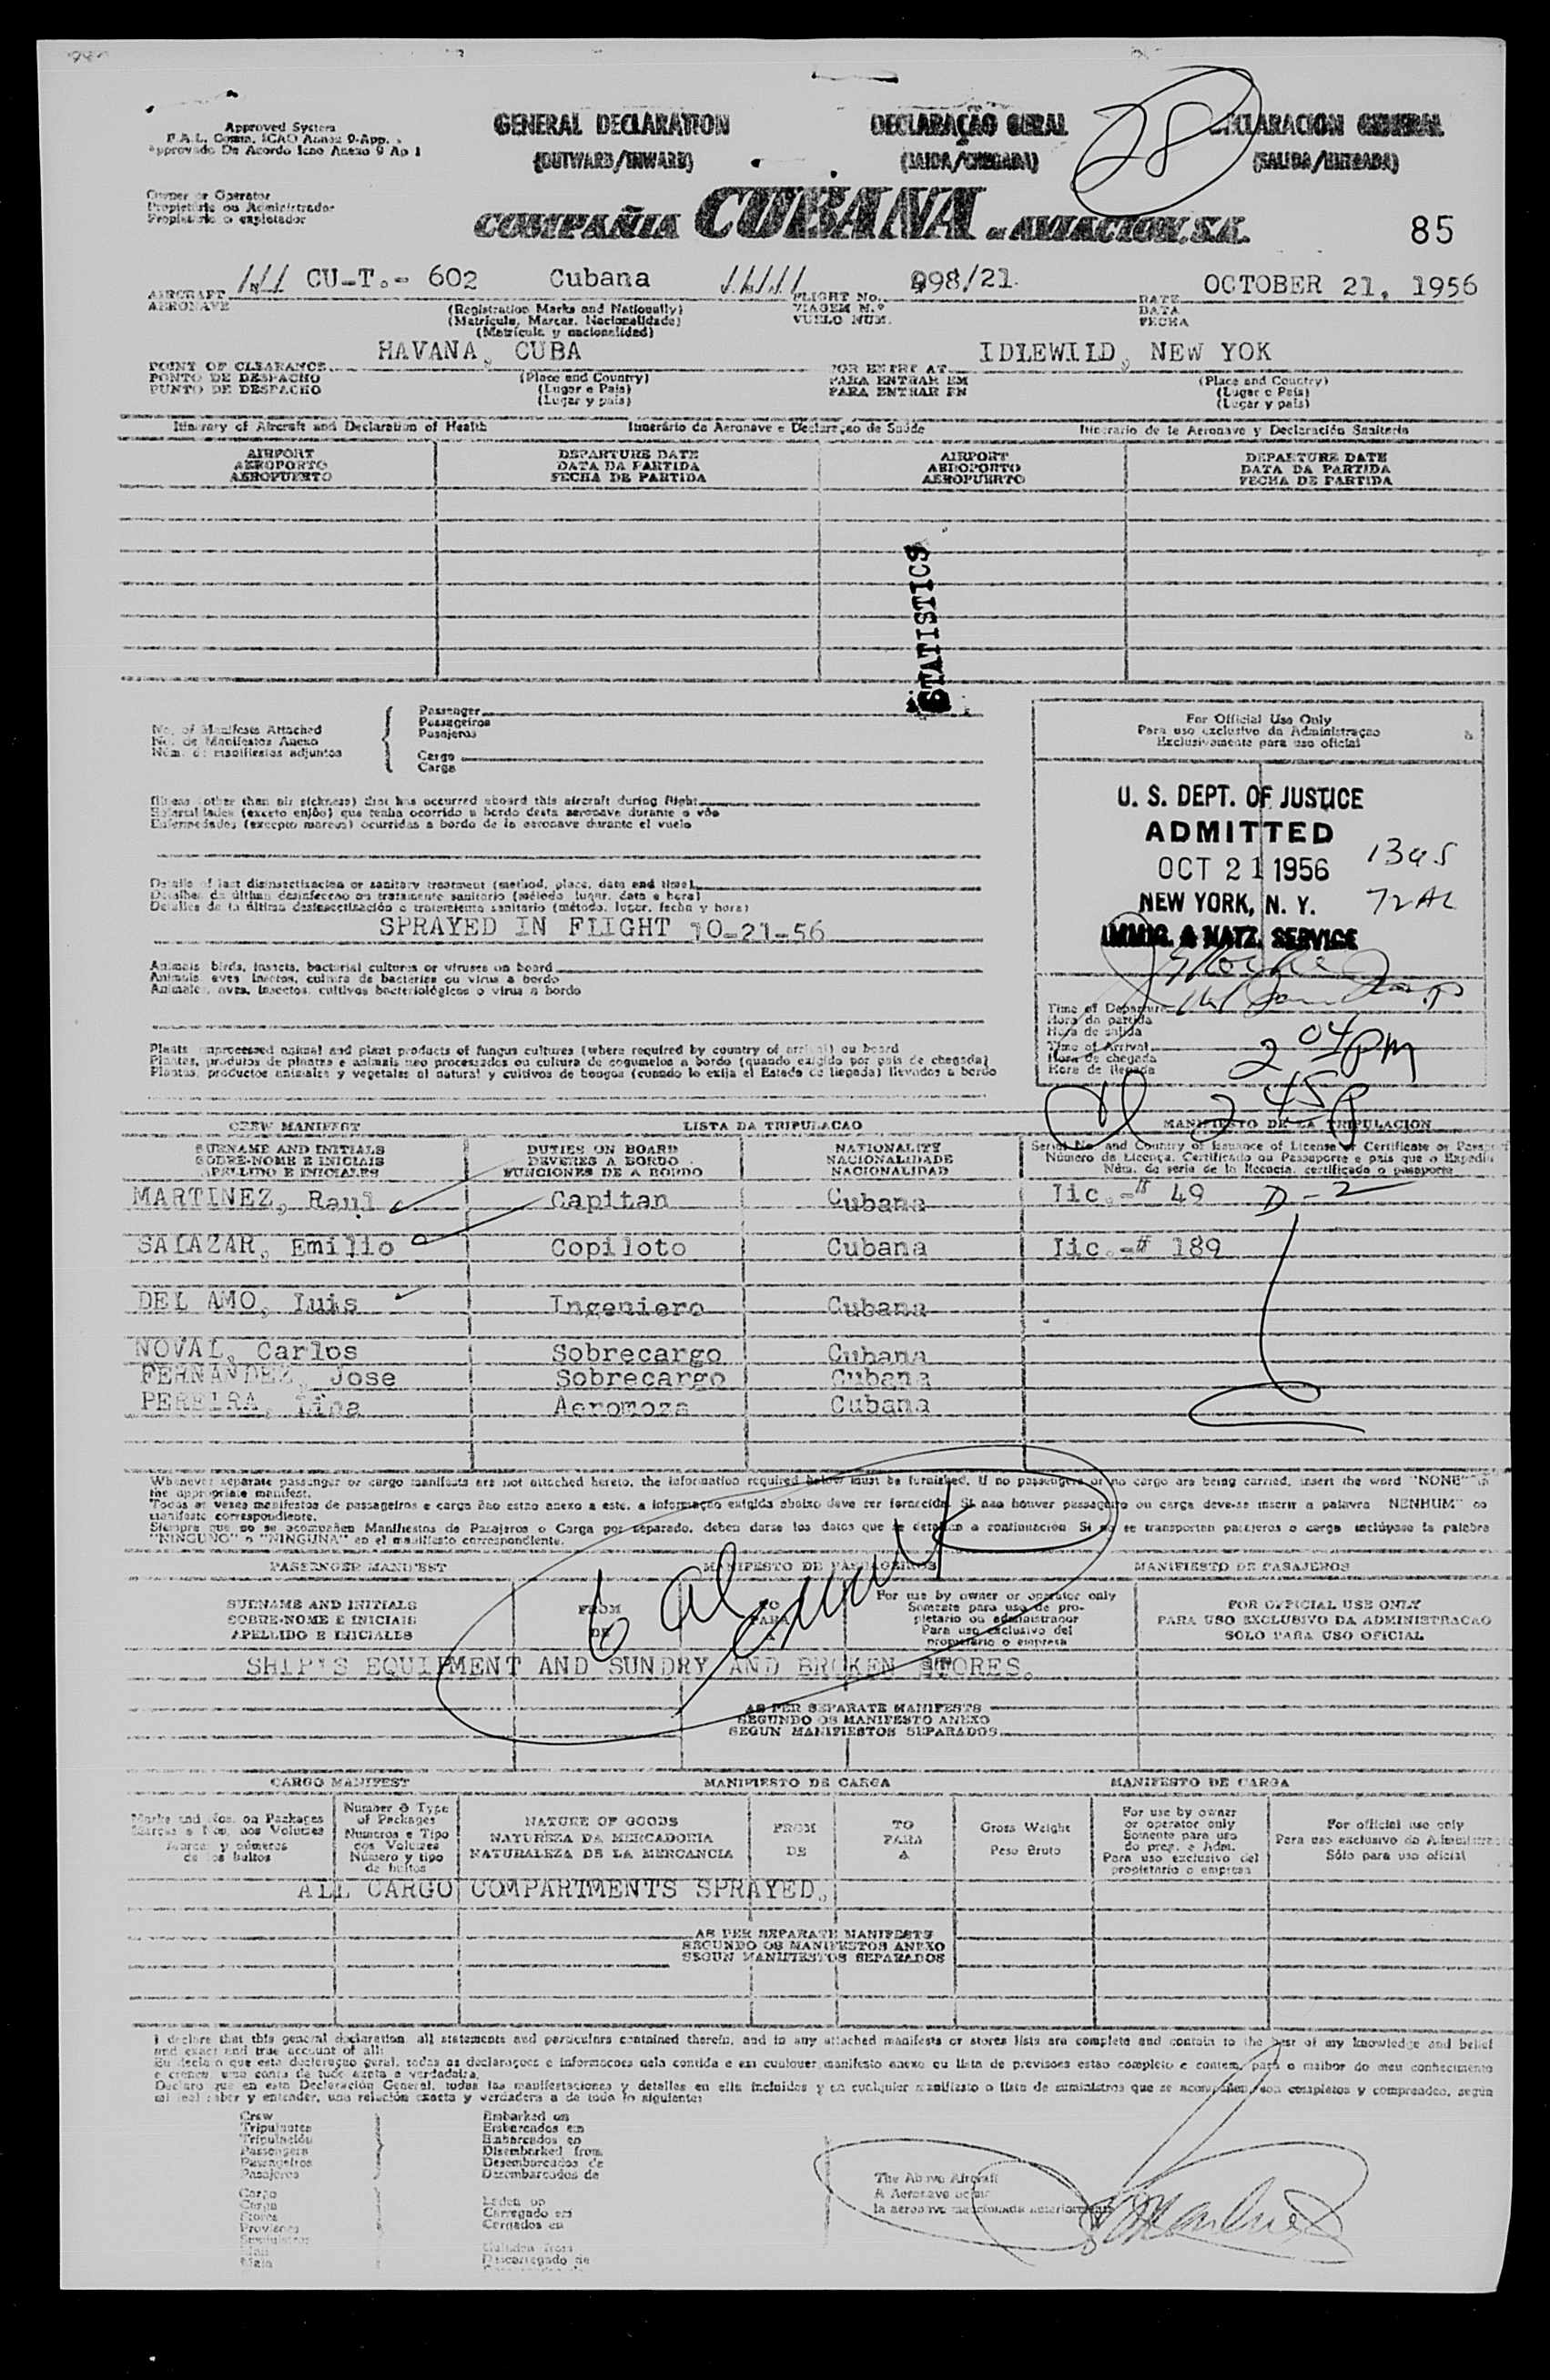 Approved System
F.A.L. Comm. ICAO Annex 9-App.
Approvado De Acordo Icao Anexo 9 Ap 1
GENERAL DECLARATION
(OUTWARD/INWARD)
DECLARAÇÃO GERAL
(SAIDA/CHEGADA)
DECLARACION GENERAL
(SALIDA/ENTRADA)
28
Owner or Operator
Propietario ou Administrador
Propietario o explotador
COMPAÑIA CUBANA de AVIACION, S.A.
85
AIRCRAFT
AERONAVE
CU-T.- 602 Cubana
(Registration Marks and Nationality)
(Matricula, Marcas, Nacionalidade)
(Matricula y nacionalidad)
FLIGHT No.
VIAGEM N.º
VUELO NUM.
998/21.
DATE
DATA
FECHA
OCTOBER 21, 1956
POINT OF CLEARANCE
PONTO DE DESPACHO
PUNTO DE DESPACHO
HAVANA, CUBA
(Place and Country)
(Lugar e Pais)
(Lugar y pais)
FOR ENTRY AT
PARA ENTRAR EM
PARA ENTRAR EN
IDLEWILD, NEW YOK
(Place and Country)
(Lugar e Pais)
(Lugar y pais)
Itinerary of Aircraft and Declaration of Health
Itinerário da Aeronave e Declaração de Saúde
Itinerario de la Aeronave y Declaración Sanitaria
AIRPORT
AEROPORTO
AEROPUERTO
DEPARTURE DATE
DATA DA PARTIDA
FECHA DE PARTIDA
AIRPORT
AEROPORTO
AEROPUERTO
DEPARTURE DATE
DATA DA PARTIDA
FECHA DE PARTIDA
STATISTICS
No. of Manifests Attached
No. de Manifestos Anexo
Núm. de manifiestos adjuntos
Passenger
Passageiros
Pasajeros
Cargo
Carga
For Official Use Only
Para uso exclusivo da Administraçao
Exclusivamente para uso oficial
Illness (other than air sickness) that has occurred aboard this aircraft during flight
Enfermedades (excepto mareos) ocurridas a bordo de la aeronave durante el vuelo
U. S. DEPT. OF JUSTICE
ADMITTED
OCT 21 1956
NEW YORK, N. Y.
IMMIG. & NATZ. SERVICE
Details of last disinsectization or sanitary treatment (method, place, date and time)
Detalles de la última desinsectización o tratamiento sanitario (método, lugar, fecha y hora)
SPRAYED IN FLIGHT 10-21-56
Animals birds, insects, bacterial cultures or viruses on board
Animais aves insetos, cultura de bacterias ou virus a bordo
Animales, aves, insectos, cultivos bacteriológicos o virus a bordo
Time of Departure
Hora da partida
Hora de salida
Time of Arrival
Hora de chegada
Hora de llegada
2 04 pm
2 45 P
Plants unprocessed animal and plant products of fungus cultures (where required by country of arrival) on board
Plantas, produtos de plantas e animais nao processados ou cultura de cogumelos a bordo (quando exigido por pais de chegada)
Plantas, productos animales y vegetales al natural y cultivos de hongos (cuando lo exija el Estado de llegada) llevados a bordo
CREW MANIFEST
LISTA DA TRIPULACAO
MANIFIESTO DE LA TRIPULACION
SURNAME AND INITIALS
SOBRE-NOME E INICIAIS
APELLIDO E INICIALES
DUTIES ON BOARD
DEVERES A BORDO
FUNCIONES DE A BORDO
NATIONALITY
NACIONALIDADE
NACIONALIDAD
Serial No. and Country of Issuance of License or Certificate or Passport
Núm. de serie de la licencia, certificado o pasaporte
MARTINEZ, Raul Capitan Cubana Lic.-# 49 D-2
SALAZAR, Emilio Copiloto Cubana Lic.-# 189
DEL AMO, Luis Ingeniero Cubana
NOVAL, Carlos Sobrecargo Cubana
FERNANDEZ, Jose Sobrecargo Cubana
PEREIRA, Lina Aeromoza Cubana
Whenever separate passenger or cargo manifests are not attached hereto, the information required below must be furnished. If no passengers or no cargo are being carried, insert the word "NONE" in
the appropriate manifest.
Todas as vezes manifestos de passageiros e carga nao estao anexo a este, a informaçao exigida abaixo deve ser fornecida. Si nao houver passageiro ou carga deve-se inscrir a palavra NENHUM" no
manifesto correspondiente.
Siempre que no se acompañen Manifiestos de Pasajeros o Carga por separado, deben darse los datos que se detallan a continuación Si no se transportan pasajeros o carga inclúyase la palabra
"NINGUNO" o "NINGUNA" en el manifiesto correspondiente.
PASSENGER MANIFEST
MANIFESTO DE PASSAGEIROS
MANIFIESTO DE PASAJEROS
SURNAME AND INITIALS
SOBRE-NOME E INICIAIS
APELLIDO E INICIALES
FROM
DE
TO
PARA
A
For use by owner or operator only
Somente para uso de pro-
pietario ou administrador
Para uso exclusivo del
propietario o empresa
FOR OFFICIAL USE ONLY
PARA USO EXCLUSIVO DA ADMINISTRACAO
SOLO PARA USO OFICIAL
SHIP'S EQUIPMENT AND SUNDRY AND BROKEN STORES.
AS PER SEPARATE MANIFESTS
SEGUNDO OS MANIFESTO ANEXO
SEGUN MANIFIESTOS SEPARADOS
CARGO MANIFEST
MANIFIESTO DE CARGA
MANIFESTO DE CARGA
Marks and Nos. on Packages
Marcas e Nos. nos Volumes
Marcas y números
de los bultos
Number & Type
of Packages
Numeros e Tipo
dos Volumes
Número y tipo
de bultos
NATURE OF GOODS
NATUREZA DA MERCADORIA
NATURALEZA DE LA MERCANCIA
FROM
DE
TO
PARA
A
Gross Weight
Peso Bruto
For use by owner
or operator only
Somente para uso
do prop. e Adm.
Para uso exclusivo del
propietario o empresa
For official use only
Para uso exclusivo da Administracao
Sólo para uso oficial
ALL CARGO COMPARTMENTS SPRAYED.
AS PER SEPARATE MANIFESTS
SEGUNDO OS MANIFESTOS ANEXO
SEGUN MANIFIESTOS SEPARADOS
I declare that this general declaration, all statements and particulars contained therein, and in any attached manifests or stores lists are complete and contain to the best of my knowledge and belief
and exact and true account of all:
Declaro que en esta Declaración General, todas las manifestaciones y detalles en ella incluidos y en cualquier manifiesto o lista de suministros que se acompañen, son completos y comprenden, según
mi leal saber y entender, una relación exacta y verdadera de todo lo siguiente:
Crew
Tripulantes
Tripulación
Passengers
Passageiros
Pasajeros
Embarked on
Embarcados em
Embarcados en
Disembarked from
Desembarcados de
Desembarcados de
Cargo
Carga
Stores
Laden on
Carregado em
Cargados en
Descarregado de
The Above Aircraft
A Aeronave acima
la aeronave mencionada anteriormente